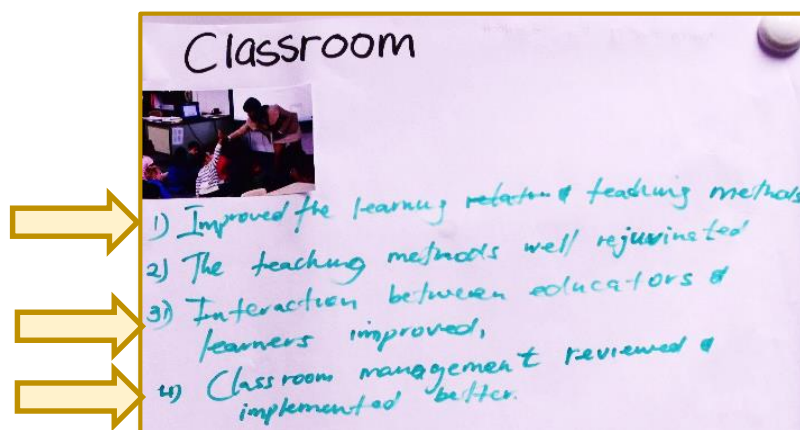 Classroom
1) Improved the learning relation & teaching methods
2) The teaching methods well rejuvinated
3) Interaction between educators &
learners improved,
4) Classroom management reviewed &
implemented better.